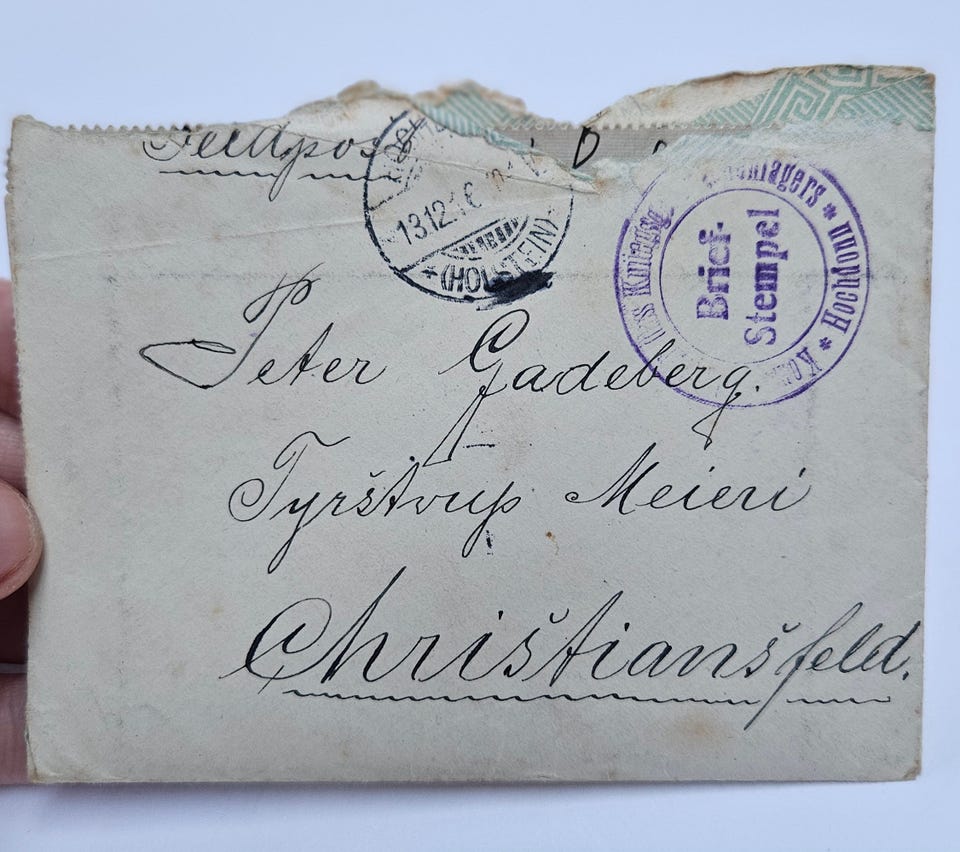 Feldpost
13.12.16
* (HOLSTEIN)
* Hochdonn *
Brief-
Stempel
Peter Gadeberg.
Tyrstrup Meieri
Christiansfeld.